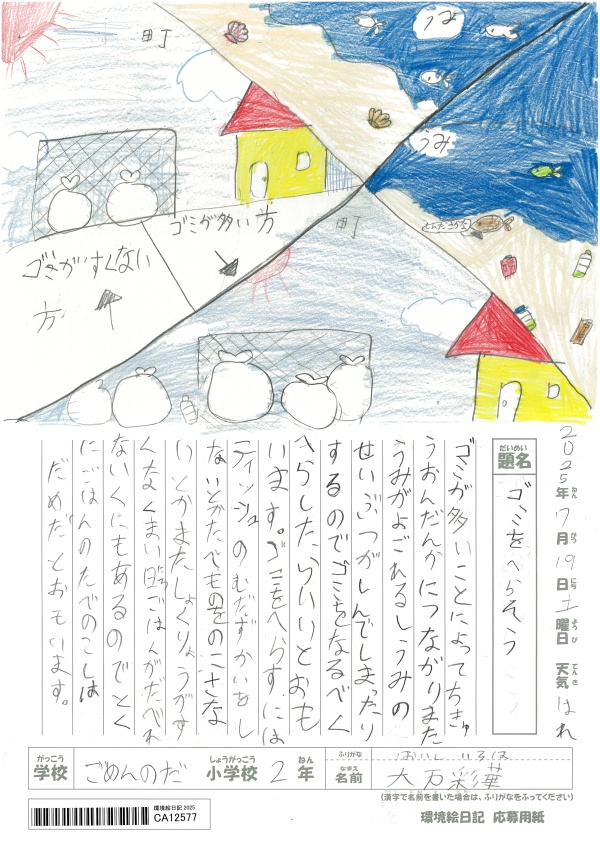 町
うみ
うみ
ゴミが多い方
町
ゴミがすくない
方
2025年7月19日土曜日 天気 はれ
ねん がつ にち ようび てんき
だいめい
題名
ゴミをへらそう
ゴミが多いことによってちきゅ
うおんだんかにつながりまた
うみがよごれるしうみの
せいぶつがしんでしまったり
するのでゴミをなるべく
へらしたらいいとおも
います。ゴミをへらすには
ティッシュのむだずかいをし
ないとかたべものをのこさな
いとかまたしょくりょうがす
くなくまい日ごはんがたべれ
ないくにもあるのでとく
にごはんのたべのこしは
だめだとおもいます。
がっこう
学校
ごめんのだ
しょうがっこう
小学校
2
ねん
年
ふりがな
なまえ
名前
大石彩華
(漢字で名前を書いた場合は、ふりがなをふってください)
環境絵日記 2025
CA12577
環境絵日記 応募用紙